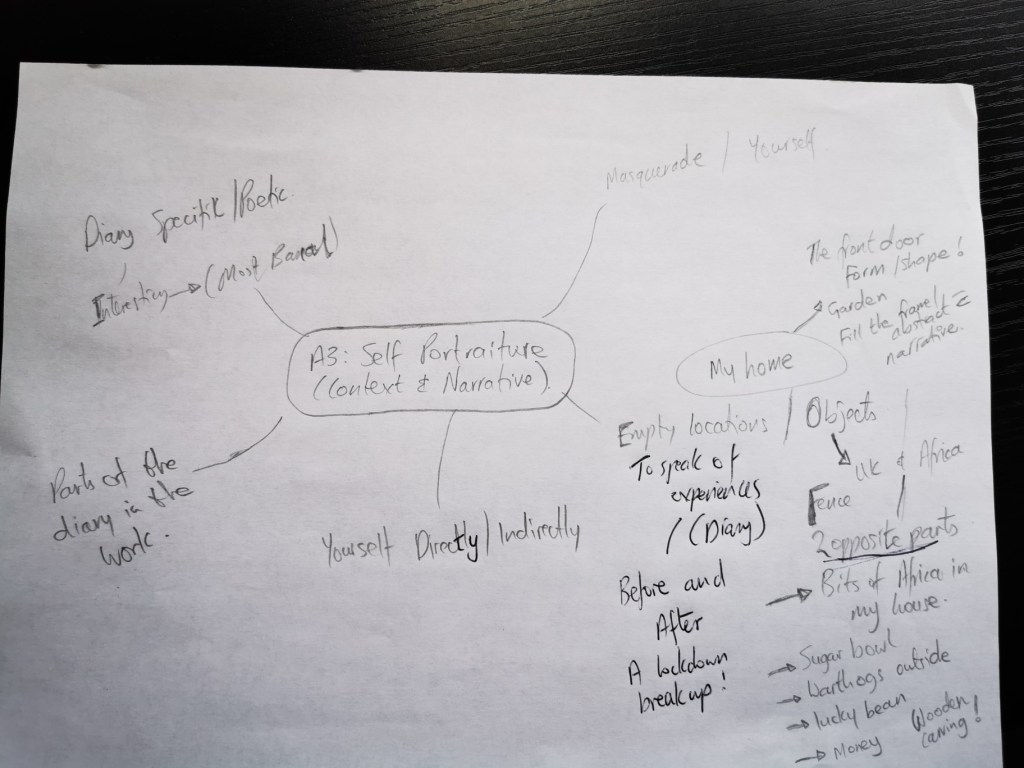 Masquerade / Yourself
Diary Specifik / Poetic.
Interesting → (Most Banal)
A3: Self Portraiture
(Context & Narrative).
Parts of the
diary in the
work.
Yourself Directly / Indirectly
The front door
Form / shape!
Garden
Fill the frame!
abstract =
narrative.
My home
Empty locations / Objects
To speak of
experiences
/ (Diary)
UK & Africa
Fence
2 opposite parts
Before and
After
A lockdown
break up!
→ Bits of Africa in
my house.
→ Sugar bowl
→ Warthogs outside
→ lucky bean
→ Money Wooden
carving!